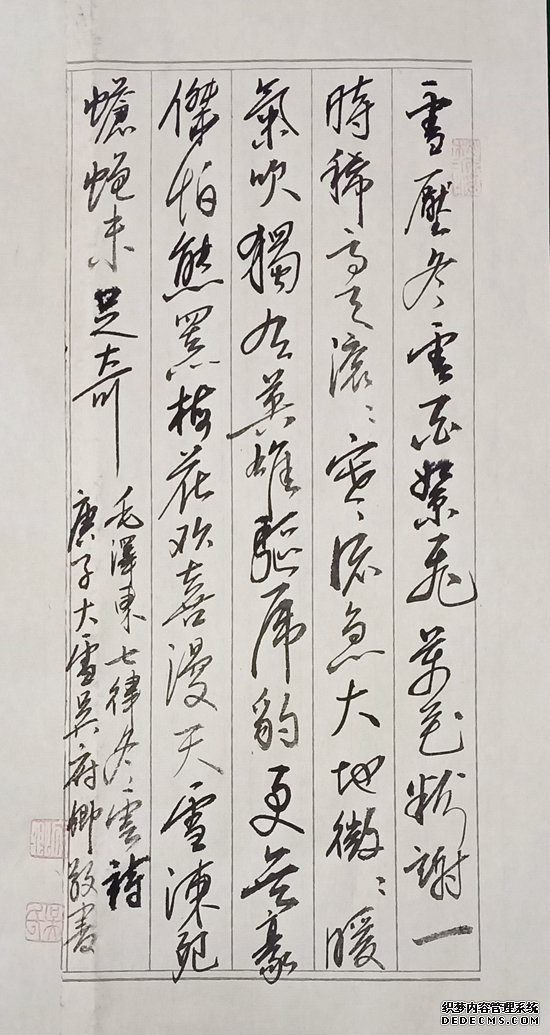 雪壓冬雲白絮飛萬花紛謝一
時稀高天滾〻寒流急大地微〻暖
氣吹獨有英雄驅虎豹更無豪
傑怕熊羆梅花欢喜漫天雪凍死
螥蠅未足奇
毛澤東七律冬雲詩
庚子大雪吳府卿敬書
织梦内容管理系统
DEDECMS.COM